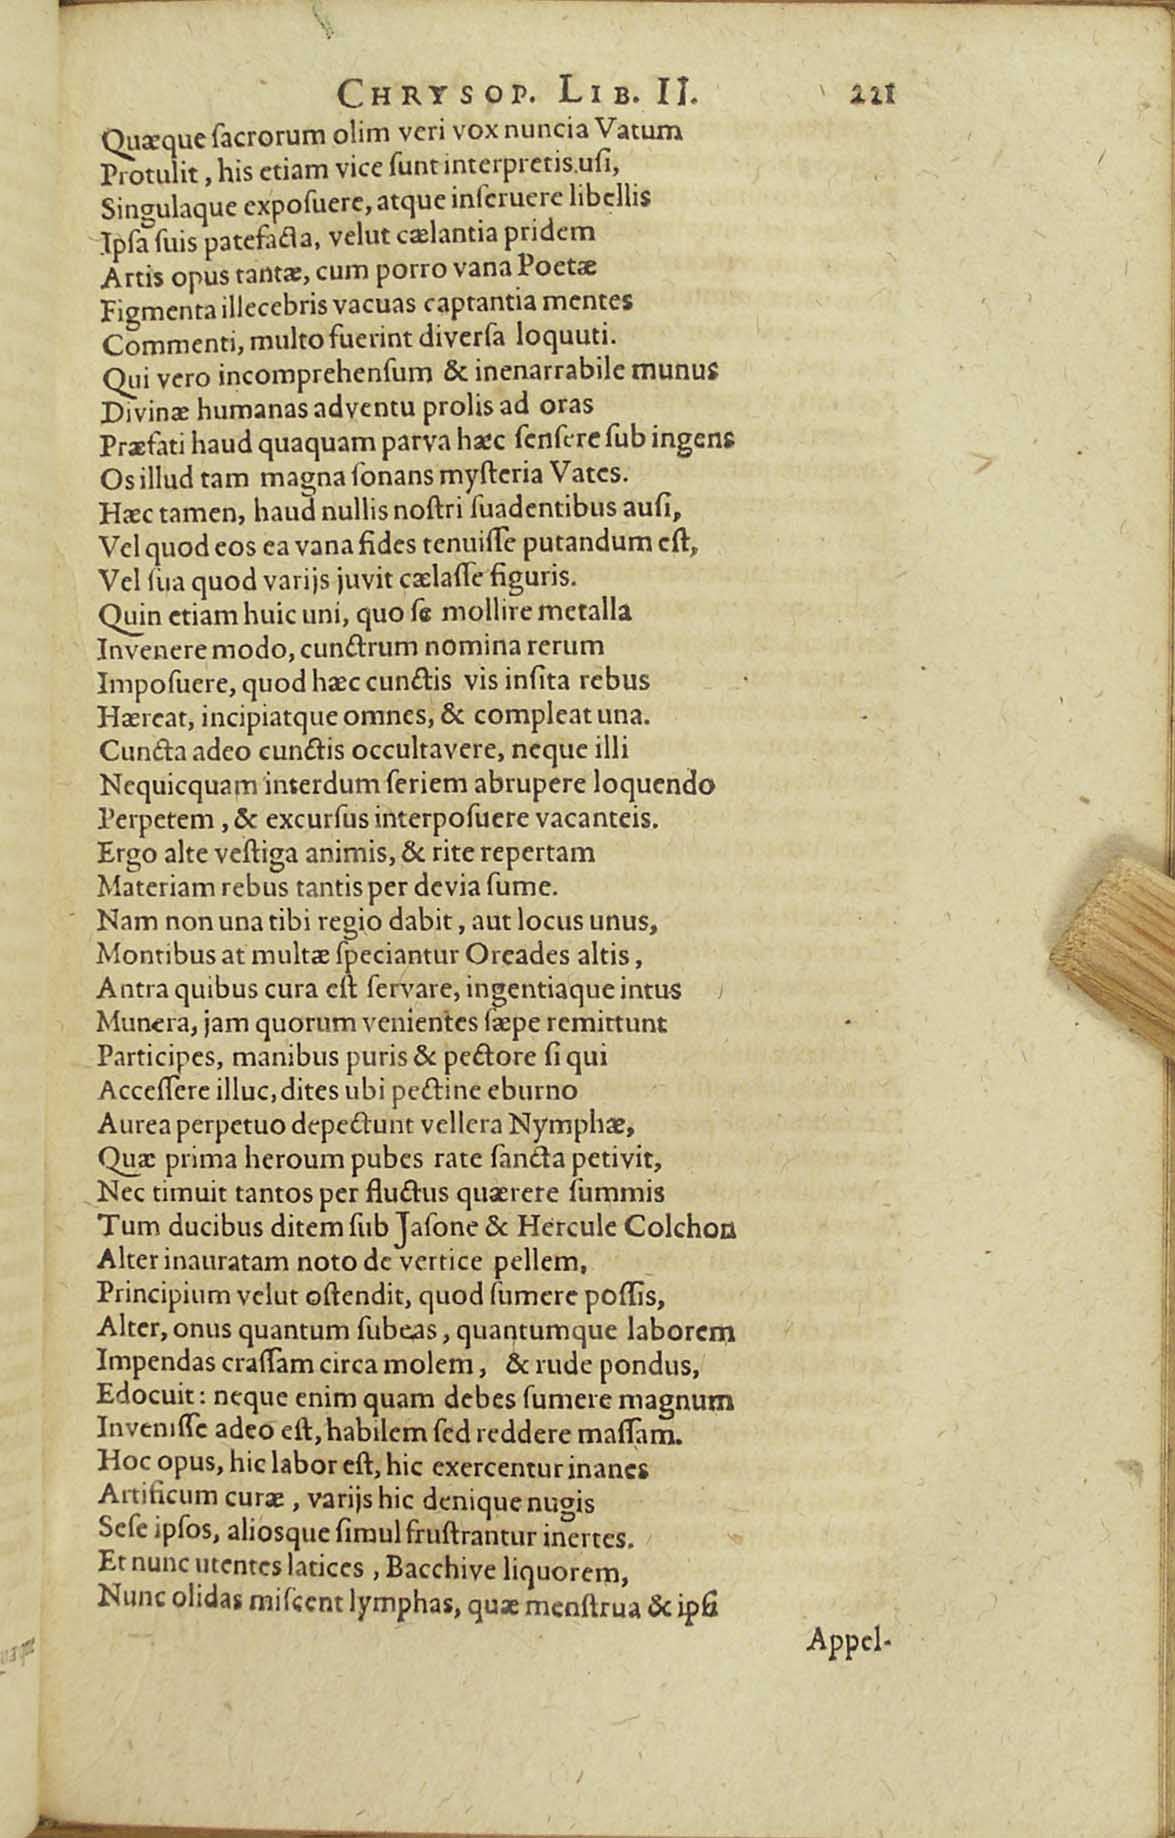 CHRYSOP. LIB. II. 221
Quæque ſacrorum olim veri vox nuncia Vatum
Protulit, his etiam vice ſunt interpretis uſi,
Singulaque expoſuere, atque inſeruere libellis
Ipſa ſuis patefacta, velut cælantia pridem
Artis opus tantæ, cum porro vana Poetæ
Figmenta illecebris vacuas captantia mentes
Commenti, multo fuerint diverſa loquuti.
Qui vero incomprehenſum & inenarrabile munus
Divinæ humanas adventu prolis ad oras
Præfati haud quaquam parva hæc ſenſere ſub ingens
Os illud tam magna ſonans myſteria Vates.
Hæc tamen, haud nullis noſtri ſuadentibus auſi,
Vel quod eos ea vana fides tenuiſſe putandum eſt,
Vel ſua quod varijs juvit cælaſſe figuris.
Quin etiam huic uni, quo ſe mollire metalla
Invenere modo, cunctrum nomina rerum
Impoſuere, quod hæc cunctis vis inſita rebus
Hæreat, incipiatque omnes, & compleat una.
Cuncta adeo cunctis occultavere, neque illi
Nequicquam interdum ſeriem abrupere loquendo
Perpetem, & excurſus interpoſuere vacanteis.
Ergo alte veſtiga animis, & rite repertam
Materiam rebus tantis per devia ſume.
Nam non una tibi regio dabit, aut locus unus,
Montibus at multæ ſpeciantur Oreades altis,
Antra quibus cura eſt ſervare, ingentiaque intus
Munera, jam quorum venientes ſæpe remittunt
Participes, manibus puris & pectore ſi qui
Acceſſere illuc, dites ubi pectine eburno
Aurea perpetuo depectunt vellera Nymphæ,
Quæ prima heroum pubes rate ſancta petivit,
Nec timuit tantos per fluctus quærere ſummis
Tum ducibus ditem ſub Jaſone & Hercule Colchon
Alter inauratam noto de vertice pellem,
Principium velut oſtendit, quod ſumere poſſis,
Alter, onus quantum ſubeas, quantumque laborem
Impendas craſſam circa molem, & rude pondus,
Edocuit: neque enim quam debes ſumere magnum
Inveniſſe adeo eſt, habilem ſed reddere maſſam.
Hoc opus, hic labor eſt, hic exercentur inanes
Artificum curæ, varijs hic denique nugis
Seſe ipſos, aliosque ſimul fruſtrantur inertes.
Et nunc utentes latices, Bacchive liquorem,
Nunc olidas miſcent lymphas, quæ menſtrua & ipſi
Appel-